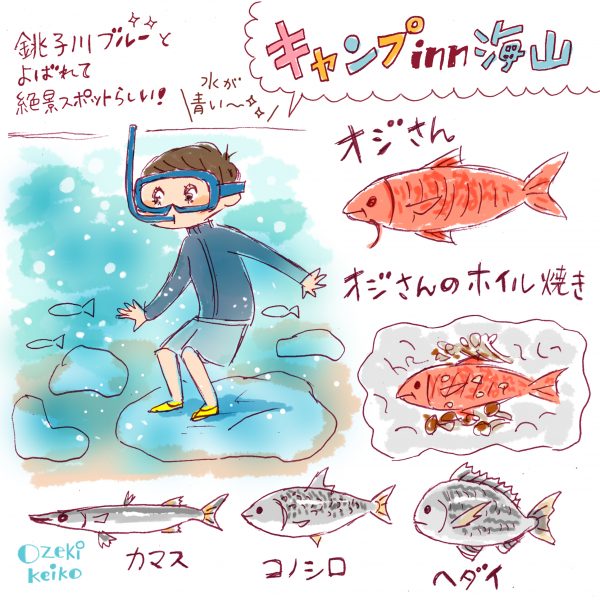 銚子川ブルーと
よばれて
絶景スポットらしい!
キャンプinn海山
水が
青い〜
オジさん
オジさんのホイル焼き
カマス
コノシロ
ヘダイ
Ozeki
keiko